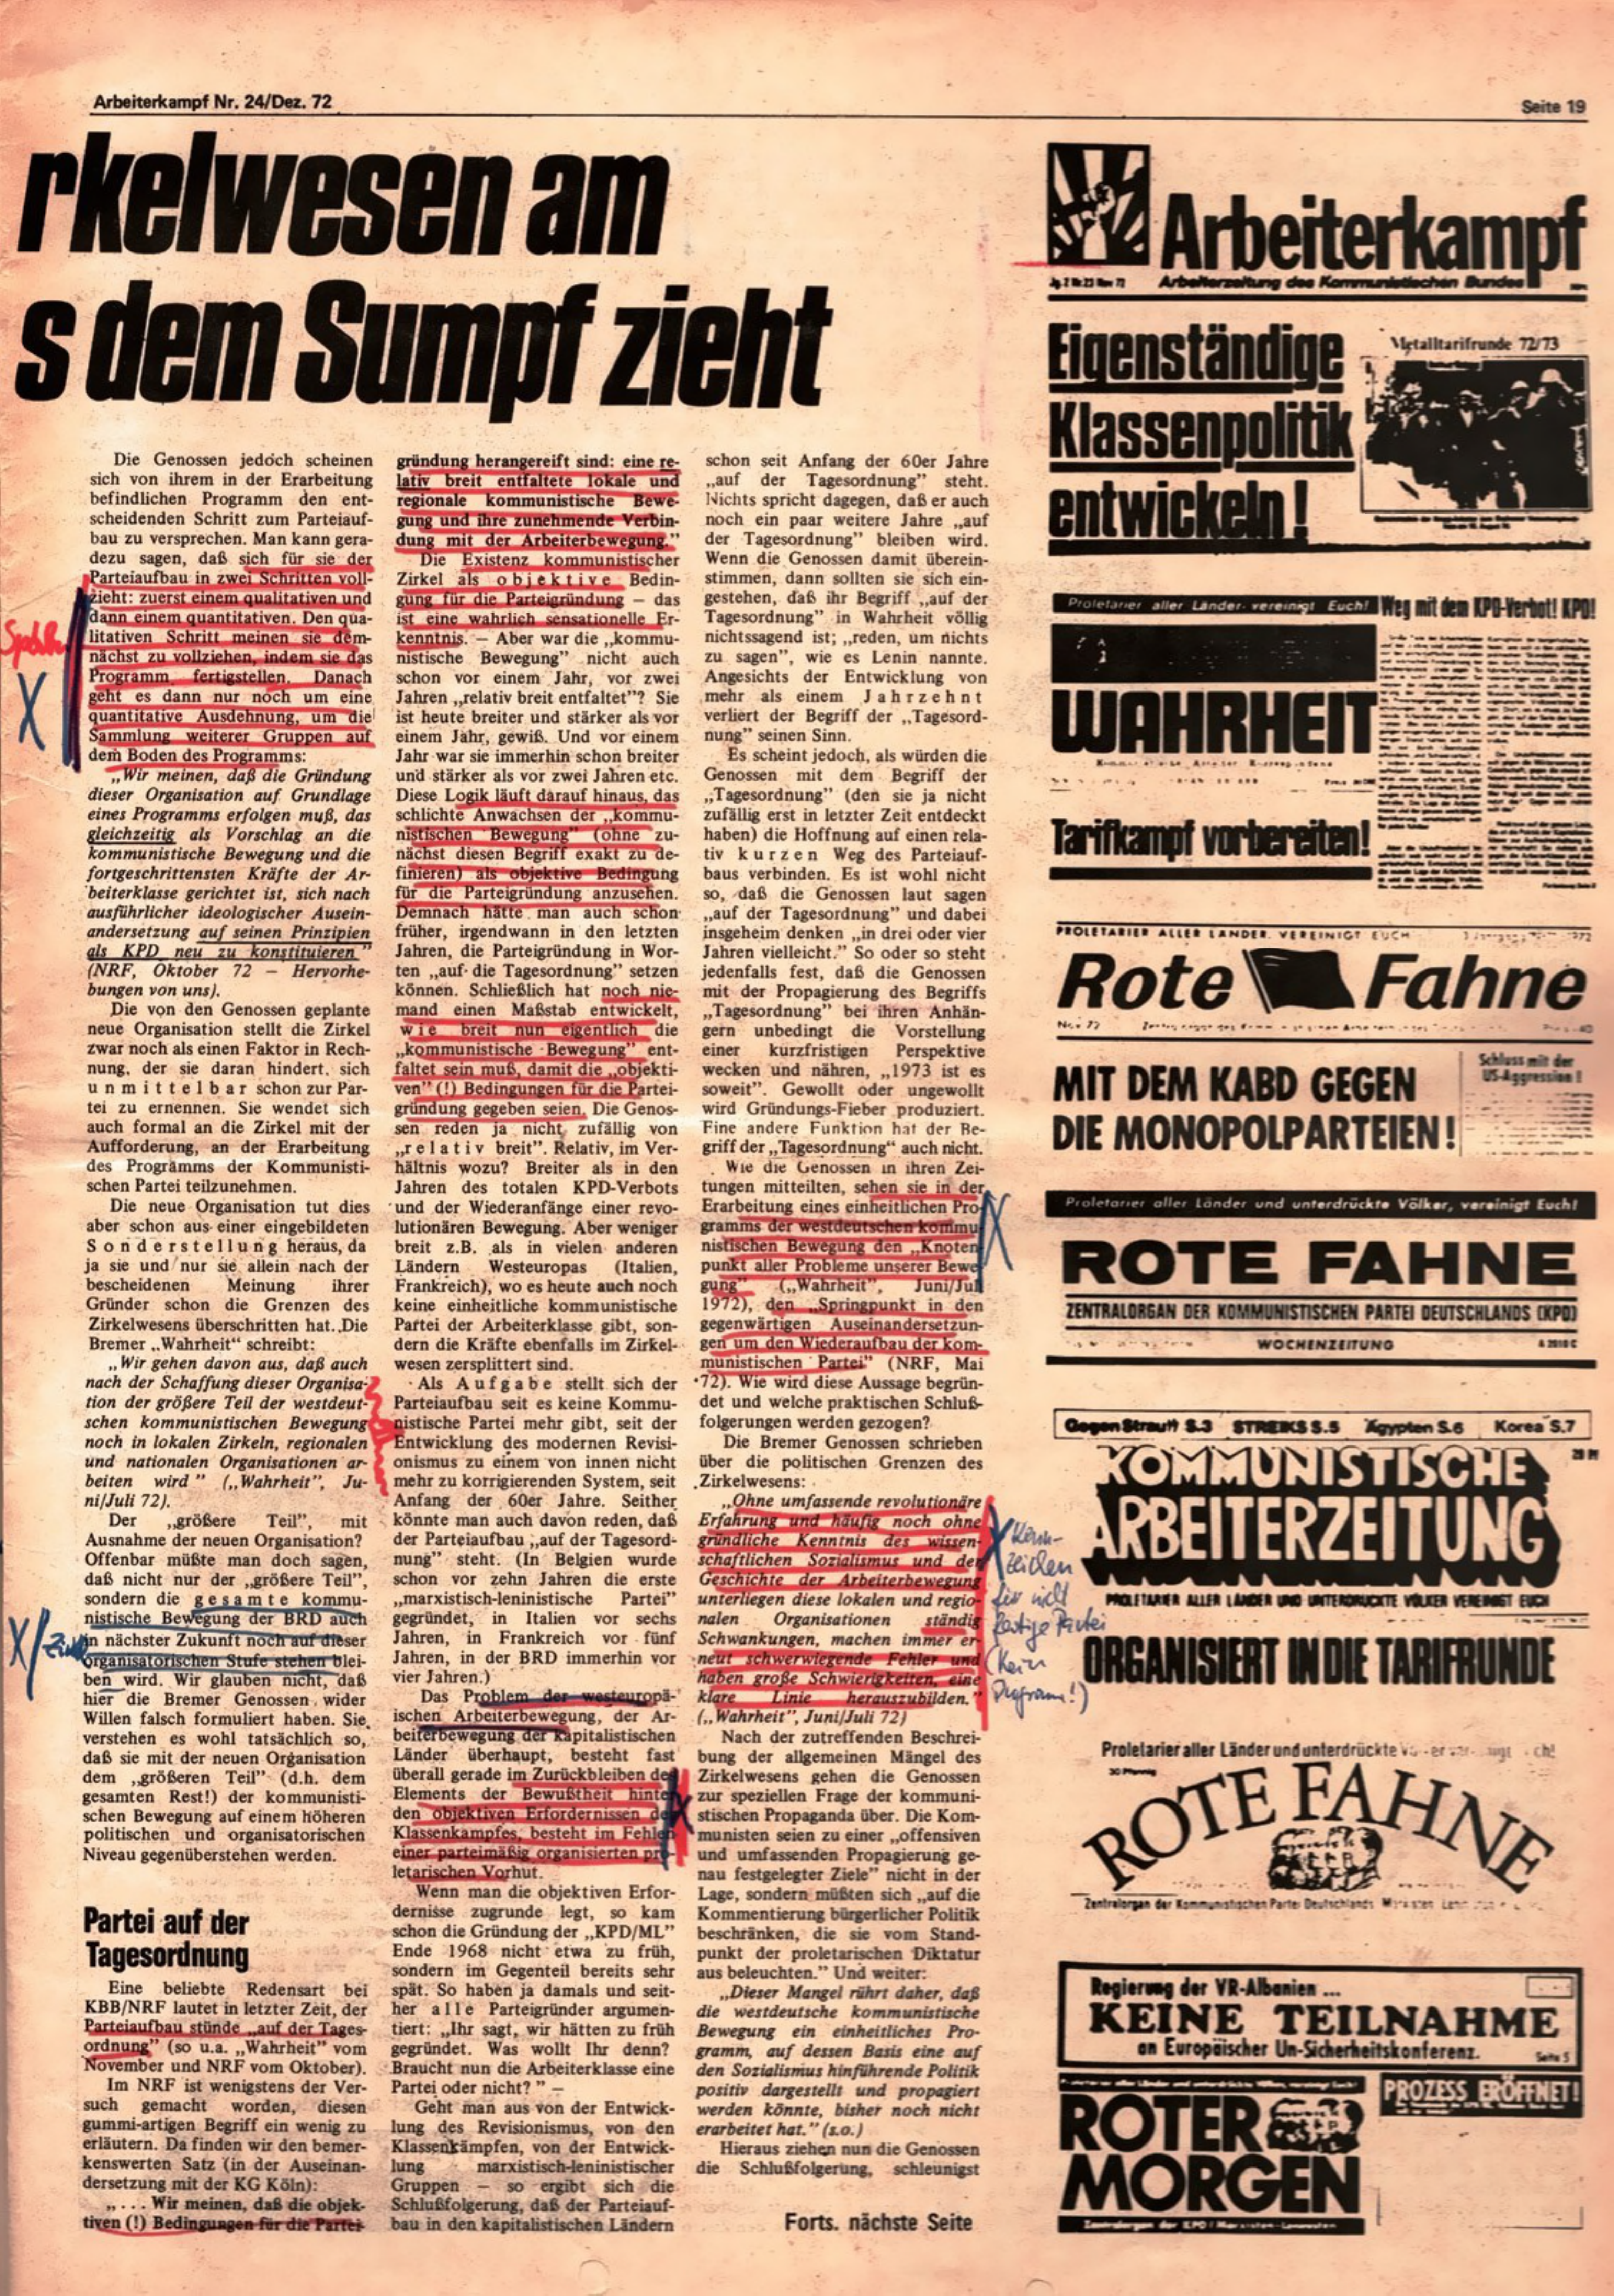 Arbeiterkampf Nr. 24/Dez. 72
Seite 19
rkelwesen am
s dem Sumpf zieht
Die Genossen jedoch scheinen
sich von ihrem in der Erarbeitung
befindlichen Programm den ent-
scheidenden Schritt zum Parteiauf-
bau zu versprechen. Man kann gera-
dezu sagen, daß sich für sie der
Parteiaufbau in zwei Schritten voll-
zieht: zuerst einem qualitativen und
dann einem quantitativen. Den qua-
litativen Schritt meinen sie dem-
nächst zu vollziehen, indem sie das
Programm fertigstellen. Danach
geht es dann nur noch um eine
quantitative Ausdehnung, um die
Sammlung weiterer Gruppen auf
dem Boden des Programms:
„Wir meinen, daß die Gründung
dieser Organisation auf Grundlage
eines Programms erfolgen muß, das
gleichzeitig als Vorschlag an die
kommunistische Bewegung und die
fortgeschrittensten Kräfte der Ar-
beiterklasse gerichtet ist, sich nach
ausführlicher ideologischer Ausein-
andersetzung auf seinen Prinzipien
als KPD neu zu konstituieren"
(NRF, Oktober 72 – Hervorhe-
bungen von uns).
Die von den Genossen geplante
neue Organisation stellt die Zirkel
zwar noch als einen Faktor in Rech-
nung, der sie daran hindert, sich
unmittelbar schon zur Par-
tei zu ernennen. Sie wendet sich
auch formal an die Zirkel mit der
Aufforderung, an der Erarbeitung
des Programms der Kommunisti-
schen Partei teilzunehmen.
Die neue Organisation tut dies
aber schon aus einer eingebildeten
Sonderstellung heraus, da
ja sie und nur sie allein nach der
bescheidenen Meinung ihrer
Gründer schon die Grenzen des
Zirkelwesens überschritten hat. Die
Bremer „Wahrheit" schreibt:
„Wir gehen davon aus, daß auch
nach der Schaffung dieser Organisa-
tion der größere Teil der westdeut-
schen kommunistischen Bewegung
noch in lokalen Zirkeln, regionalen
und nationalen Organisationen ar-
beiten wird" („Wahrheit", Ju-
ni/Juli 72).
Der „größere Teil", mit
Ausnahme der neuen Organisation?
Offenbar müßte man doch sagen,
daß nicht nur der „größere Teil",
sondern die gesamte kommu-
nistische Bewegung der BRD auch
in nächster Zukunft noch auf dieser
organisatorischen Stufe stehen blei-
ben wird. Wir glauben nicht, daß
hier die Bremer Genossen wider
Willen falsch formuliert haben. Sie
verstehen es wohl tatsächlich so,
daß sie mit der neuen Organisation
dem „größeren Teil" (d.h. dem
gesamten Rest!) der kommunisti-
schen Bewegung auf einem höheren
politischen und organisatorischen
Niveau gegenüberstehen werden.
Partei auf der
Tagesordnung
Eine beliebte Redensart bei
KBB/NRF lautet in letzter Zeit, der
Parteiaufbau stünde „auf der Tages-
ordnung" (so u.a. „Wahrheit" vom
November und NRF vom Oktober).
Im NRF ist wenigstens der Ver-
such gemacht worden, diesen
gummi-artigen Begriff ein wenig zu
erläutern. Da finden wir den bemer-
kenswerten Satz (in der Auseinan-
dersetzung mit der KG Köln):
„. . . Wir meinen, daß die objek-
tiven (!) Bedingungen für die Partei-
gründung herangereift sind: eine re-
lativ breit entfaltete lokale und
regionale kommunistische Bewe-
gung und ihre zunehmende Verbin-
dung mit der Arbeiterbewegung."
Die Existenz kommunistischer
Zirkel als objektive Bedin-
gung für die Parteigründung – das
ist eine wahrlich sensationelle Er-
kenntnis. – Aber war die „kommu-
nistische Bewegung" nicht auch
schon vor einem Jahr, vor zwei
Jahren „relativ breit entfaltet"? Sie
ist heute breiter und stärker als vor
einem Jahr, gewiß. Und vor einem
Jahr war sie immerhin schon breiter
und stärker als vor zwei Jahren etc.
Diese Logik läuft darauf hinaus, das
schlichte Anwachsen der „kommu-
nistischen Bewegung" (ohne zu-
nächst diesen Begriff exakt zu de-
finieren) als objektive Bedingung
für die Parteigründung anzusehen.
Demnach hätte man auch schon
früher, irgendwann in den letzten
Jahren, die Parteigründung in Wor-
ten „auf die Tagesordnung" setzen
können. Schließlich hat noch nie-
mand einen Maßstab entwickelt,
wie breit nun eigentlich die
„kommunistische Bewegung" ent-
faltet sein muß, damit die „objekti-
ven" (!) Bedingungen für die Partei-
gründung gegeben seien. Die Genos-
sen reden ja nicht zufällig von
„relativ breit". Relativ, im Ver-
hältnis wozu? Breiter als in den
Jahren des totalen KPD-Verbots
und der Wiederanfänge einer revo-
lutionären Bewegung. Aber weniger
breit z.B. als in vielen anderen
Ländern Westeuropas (Italien,
Frankreich), wo es heute auch noch
keine einheitliche kommunistische
Partei der Arbeiterklasse gibt, son-
dern die Kräfte ebenfalls im Zirkel-
wesen zersplittert sind.
Als Aufgabe stellt sich der
Parteiaufbau seit es keine Kommu-
nistische Partei mehr gibt, seit der
Entwicklung des modernen Revisi-
onismus zu einem von innen nicht
mehr zu korrigierenden System, seit
Anfang der 60er Jahre. Seither
könnte man auch davon reden, daß
der Parteiaufbau „auf der Tagesord-
nung" steht. (In Belgien wurde
schon vor zehn Jahren die erste
„marxistisch-leninistische Partei"
gegründet, in Italien vor sechs
Jahren, in Frankreich vor fünf
Jahren, in der BRD immerhin vor
vier Jahren.)
Das Problem der westeuropä-
ischen Arbeiterbewegung, der Ar-
beiterbewegung der kapitalistischen
Länder überhaupt, besteht fast
überall gerade im Zurückbleiben des
Elements der Bewußtheit hinter
den objektiven Erfordernissen des
Klassenkampfes, besteht im Fehlen
einer parteimäßig organisierten pro-
letarischen Vorhut.
Wenn man die objektiven Erfor-
dernisse zugrunde legt, so kam
schon die Gründung der „KPD/ML"
Ende 1968 nicht etwa zu früh,
sondern im Gegenteil bereits sehr
spät. So haben ja damals und seit-
her alle Parteigründer argumen-
tiert: „Ihr sagt, wir hätten zu früh
gegründet. Was wollt Ihr denn?
Braucht nun die Arbeiterklasse eine
Partei oder nicht?" –
Geht man aus von der Entwick-
lung des Revisionismus, von den
Klassenkämpfen, von der Entwick-
lung marxistisch-leninistischer
Gruppen – so ergibt sich die
Schlußfolgerung, daß der Parteiauf-
bau in den kapitalistischen Ländern
schon seit Anfang der 60er Jahre
„auf der Tagesordnung" steht.
Nichts spricht dagegen, daß er auch
noch ein paar weitere Jahre „auf
der Tagesordnung" bleiben wird.
Wenn die Genossen damit überein-
stimmen, dann sollten sie sich ein-
gestehen, daß ihr Begriff „auf der
Tagesordnung" in Wahrheit völlig
nichtssagend ist; „reden, um nichts
zu sagen", wie es Lenin nannte.
Angesichts der Entwicklung von
mehr als einem Jahrzehnt
verliert der Begriff der „Tagesord-
nung" seinen Sinn.
Es scheint jedoch, als würden die
Genossen mit dem Begriff der
„Tagesordnung" (den sie ja nicht
zufällig erst in letzter Zeit entdeckt
haben) die Hoffnung auf einen rela-
tiv kurzen Weg des Parteiauf-
baus verbinden. Es ist wohl nicht
so, daß die Genossen laut sagen
„auf der Tagesordnung" und dabei
insgeheim denken „in drei oder vier
Jahren vielleicht." So oder so steht
jedenfalls fest, daß die Genossen
mit der Propagierung des Begriffs
„Tagesordnung" bei ihren Anhän-
gern unbedingt die Vorstellung
einer kurzfristigen Perspektive
wecken und nähren, „1973 ist es
soweit". Gewollt oder ungewollt
wird Gründungs-Fieber produziert.
Eine andere Funktion hat der Be-
griff der „Tagesordnung" auch nicht.
Wie die Genossen in ihren Zei-
tungen mitteilten, sehen sie in der
Erarbeitung eines einheitlichen Pro-
gramms der westdeutschen kommu
nistischen Bewegung den „Knoten
punkt aller Probleme unserer Bewe
gung" („Wahrheit", Juni/Jul
1972), den „Springpunkt in den
gegenwärtigen Auseinandersetzun-
gen um den Wiederaufbau der kom-
munistischen Partei" (NRF, Mai
72). Wie wird diese Aussage begrün-
det und welche praktischen Schluß-
folgerungen werden gezogen?
Die Bremer Genossen schrieben
über die politischen Grenzen des
Zirkelwesens:
„Ohne umfassende revolutionäre
Erfahrung und häufig noch ohne
gründliche Kenntnis des wissen-
schaftlichen Sozialismus und der
Geschichte der Arbeiterbewegung
unterliegen diese lokalen und regio-
nalen Organisationen ständig
Schwankungen, machen immer er-
neut schwerwiegende Fehler und
haben große Schwierigkeiten, eine
klare Linie herauszubilden."
(„Wahrheit", Juni/Juli 72)
Nach der zutreffenden Beschrei-
bung der allgemeinen Mängel des
Zirkelwesens gehen die Genossen
zur speziellen Frage der kommuni-
stischen Propaganda über. Die Kom-
munisten seien zu einer „offensiven
und umfassenden Propagierung ge-
nau festgelegter Ziele" nicht in der
Lage, sondern müßten sich „auf die
Kommentierung bürgerlicher Politik
beschränken, die sie vom Stand-
punkt der proletarischen Diktatur
aus beleuchten." Und weiter:
„Dieser Mangel rührt daher, daß
die westdeutsche kommunistische
Bewegung ein einheitliches Pro-
gramm, auf dessen Basis eine auf
den Sozialismus hinführende Politik
positiv dargestellt und propagiert
werden könnte, bisher noch nicht
erarbeitet hat." (s.o.)
Hieraus ziehen nun die Genossen
die Schlußfolgerung, schleunigst
Forts. nächste Seite
Kenn-
zeichen
für nicht
Partei
(kein
Programm!)
Arbeiterkampf
Jg. 2 Nr 23 Nov 72 Arbeiterzeitung des Kommunistischen Bundes
Eigenständige
Klassenpolitik
entwickeln!
Metalltarifrunde 72/73
Proletarier aller Länder vereinigt Euch!
Weg mit dem KPD-Verbot!
WAHRHEIT
Tarifkampf vorbereiten!
PROLETARIER ALLER LÄNDER, VEREINIGT EUCH
Rote Fahne
MIT DEM KABD GEGEN
DIE MONOPOLPARTEIEN!
Schluss mit der
US-Aggression!
Proletarier aller Länder und unterdrückte Völker, vereinigt Euch!
ROTE FAHNE
ZENTRALORGAN DER KOMMUNISTISCHEN PARTEI DEUTSCHLANDS (KPD)
WOCHENZEITUNG
Gegen Strauß S.3 STREIKS S.5 Ägypten S.6 Korea S.7
KOMMUNISTISCHE
ARBEITERZEITUNG
PROLETARIER ALLER LÄNDER UND UNTERDRÜCKTE VÖLKER VEREINIGT EUCH
ORGANISIERT IN DIE TARIFRUNDE
Proletarier aller Länder und unterdrückte
30 Pfennig
ROTE FAHNE
Zentralorgan der Kommunistischen Partei Deutschlands
Regierung der VR-Albanien ...
KEINE TEILNAHME
an Europäischer Un-Sicherheitskonferenz.
Seite 5
PROZESS ERÖFFNET!
ROTER
MORGEN